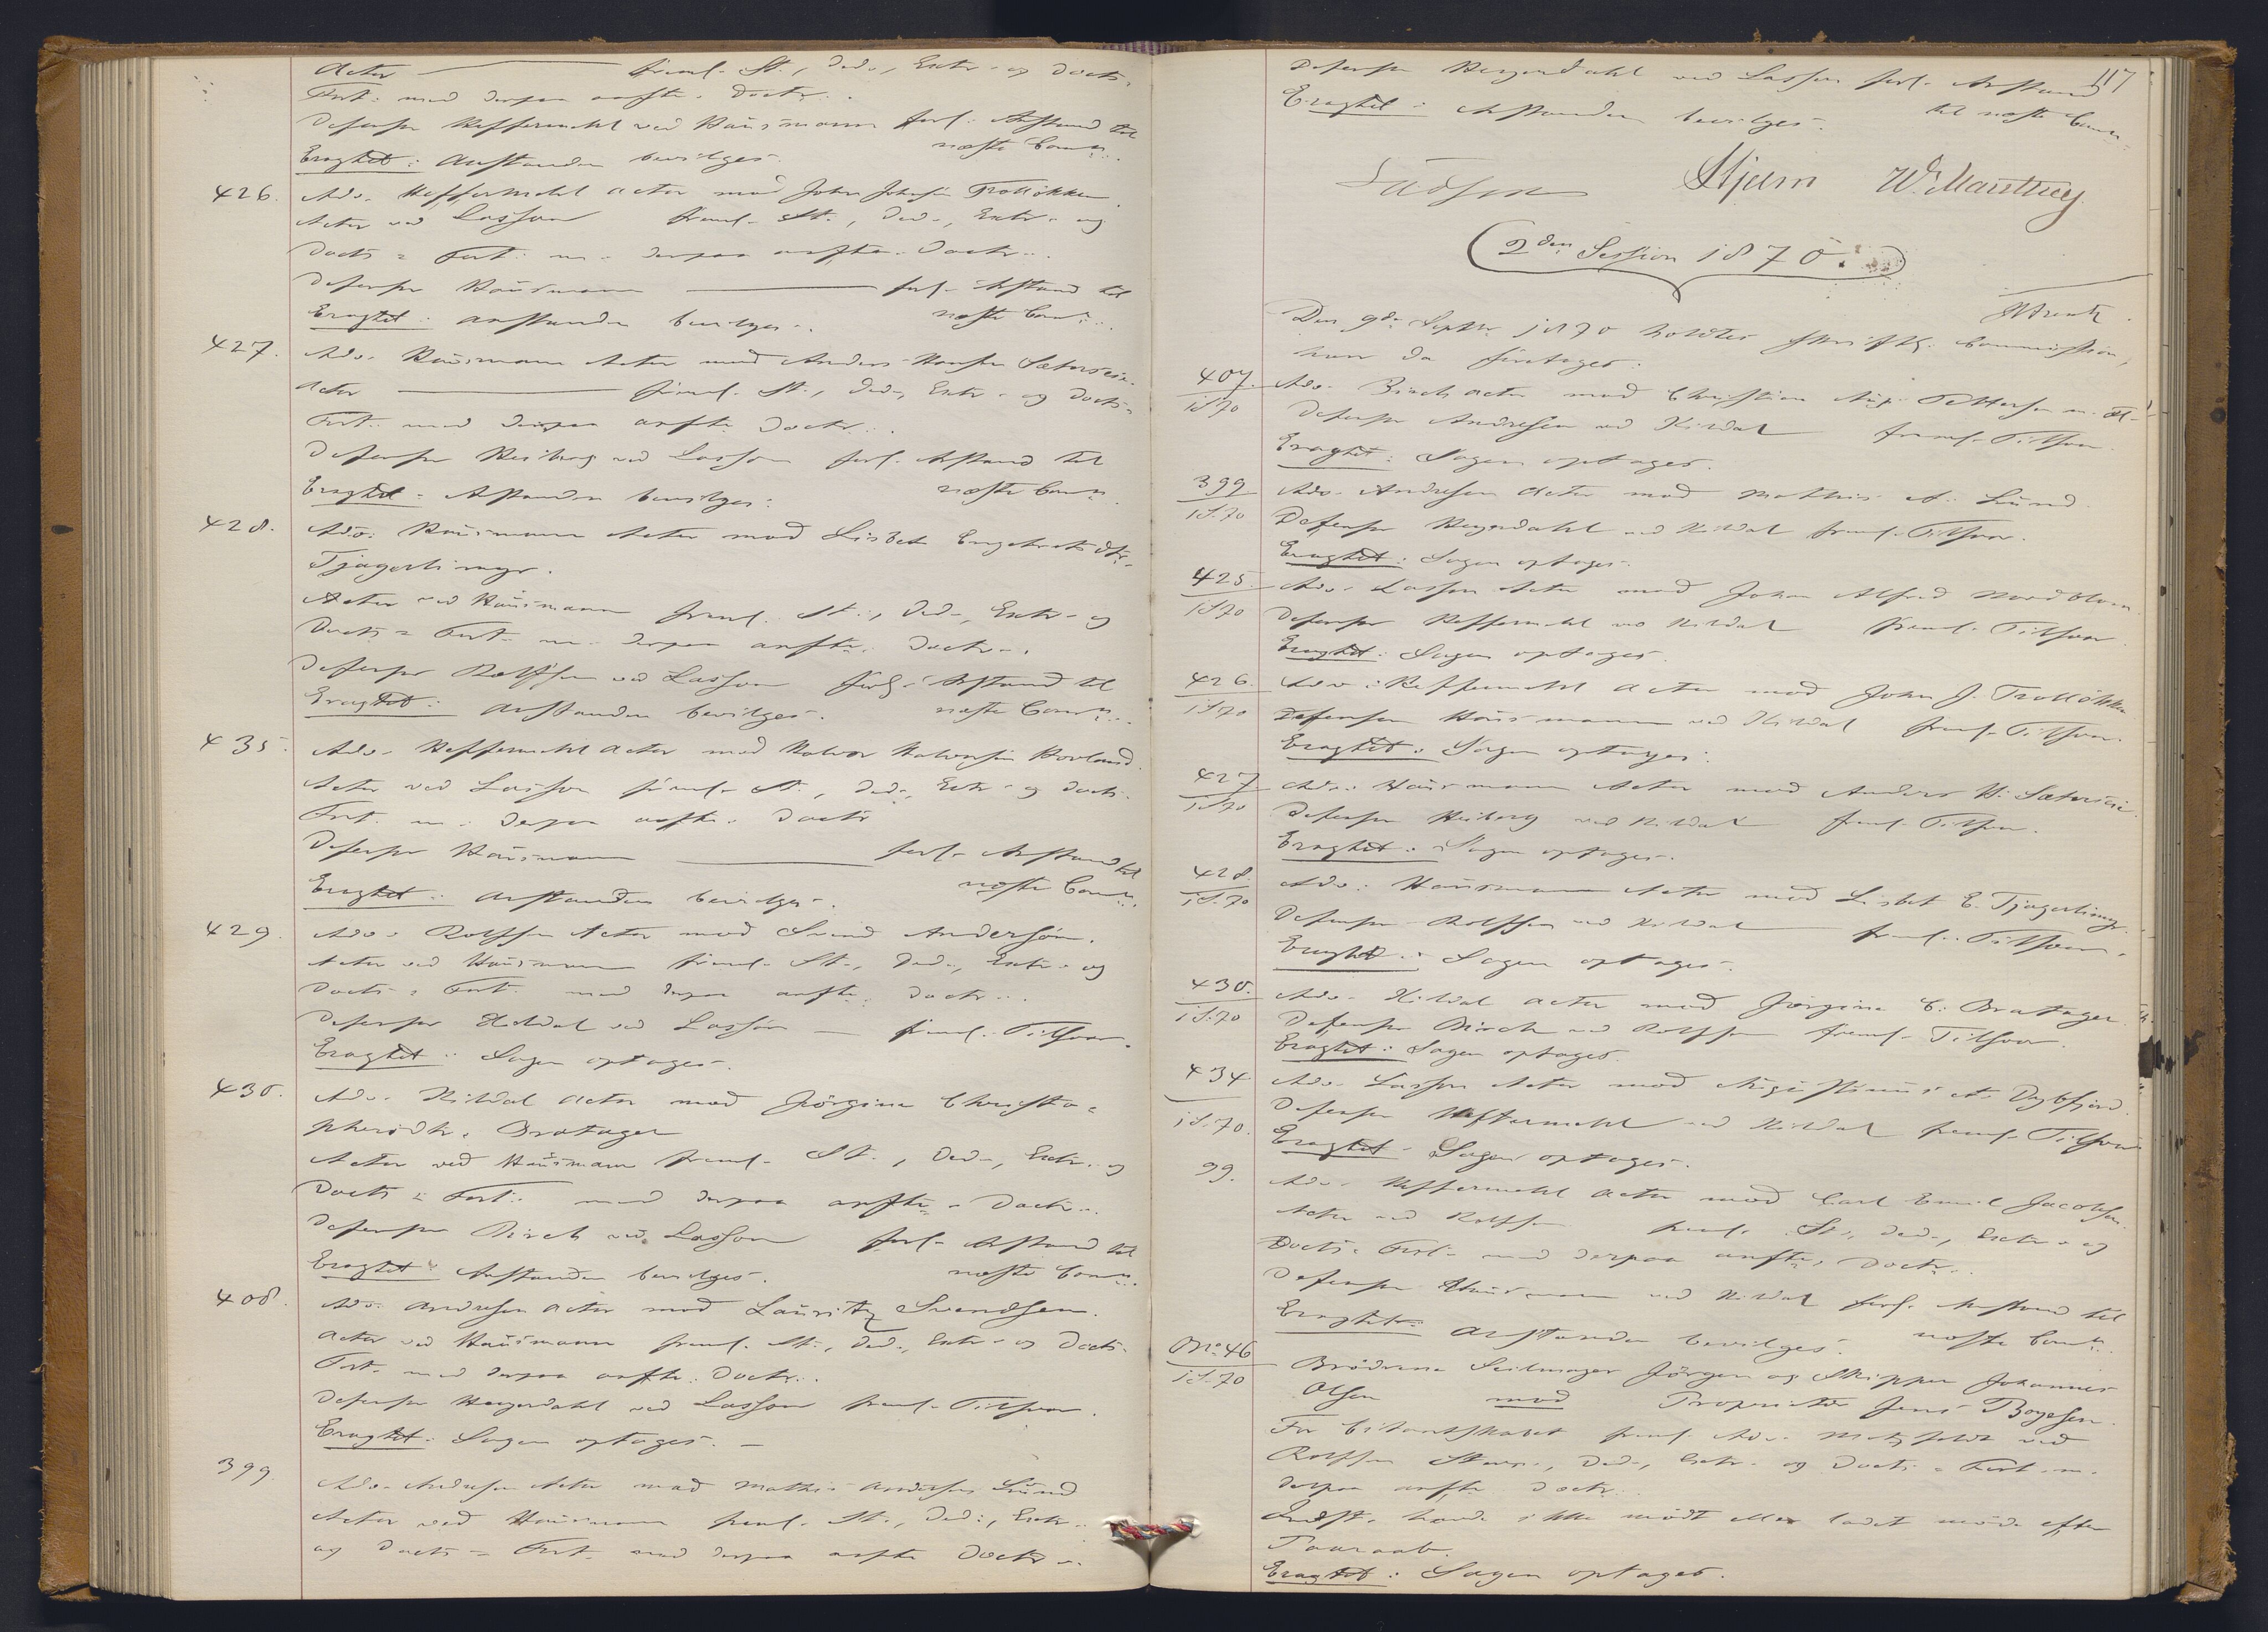 Actor — freml. St., Ded., Extr. og Docts.
Fort. med derpaa anførte Doctr.
Defensor Heffermehl ved Hausmann forl. Anstand til
næste Comn.
Eragtet: Anstanden bevilges.
426. Adv. Heffermehl Actor mod John Johnsen Trolløkken.
Actor ved Lasson freml. St., Ded., Extr. og
Docts = Fort. m. derpaa anførte Doctr.
Defensor Hausmann — forl. Anstand til
næste Comn.
Eragtet: Anstanden bevilges.
427. Adv. Hausmann Actor mod Anders Hansen Sæterseie.
Actor — freml. St., Ded., Extr. og Docts =
Fort. med derpaa anførte Doctr.
Defensor Heiberg ved Lasson forl. Anstand til
næste Comn.
Eragtet: Anstanden bevilges.
428. Adv. Hausmann Actor mod Lisbet Engebretsdtr.
Tjagerlimyr.
Actor ved Hausmann freml. St., Ded., Extr. og
Docts = Fort. m. derpaa anførte Doctr.
Defensor Rolfsen ved Lasson forl. Anstand til
næste Comn.
Eragtet: Anstanden bevilges.
435. Adv. Heffermehl Actor mod Halvor Halvorsen Hovland.
Actor ved Lasson freml. St., Ded., Extr. og Docts.
Fort. m. derpaa anførte Doctr
Defensor Hausmann — forl. Anstand til
næste Comn.
Eragtet: Anstanden bevilges.
429. Adv. Rolfsen Actor mod Svend Andersøn.
Actor ved Hausmann freml. St., Ded., Extr. og
Docts = Fort. med derpaa anførte Doctr.
Defensor Kildal ved Lasson — freml. Tilsvar.
Eragtet: Sagen optages.
430. Adv. Kildal Actor mod Jørgine Christo=
phersdtr. Bratager
Actor ved Hausmann freml. St., Ded., Extr. og
Docts = Fort. med derpaa anførte Doctr.
Defensor Birch ved Lasson forl. Anstand til
næste Comn.
Eragtet: Anstanden bevilges.
408. Adv. Andresen Actor mod Lauritz Svendsen.
Actor ved Hausmann freml. St., Ded., Extr. og Docts.
Fort. med derpaa anførte Doctr.
Defensor Heyerdahl ved Lasson freml. Tilsvar.
Eragtet: Sagen optages. —
399. Adv. Andresen Actor mod Mathis Andersen Lund
Actor ved Hausmann freml. St., Ded., Extr.
og Docts = Fort. med derpaa anførte Doctr.
117
Defensor Heyerdahl ved Lasson forl. Anstand
til næste Comn.
Eragtet: Anstanden bevilges.
Hjelm W. Manthey
2den Session 1870.
Den 9de Septbr. 1870 holdtes skriftlg. Commission,
hvor da foretoges:
407. 1 S. 70 Adv. Birch Actor mod Christian Aug. Pettersen m. Fl.
Defensor Andresen ved Kildal freml. Tilsvar.
Eragtet: Sagen optages.
399 1 S. 70 Adv. Andresen Actor mod Mathis A. Lund.
Defensor Heyerdahl ved Kildal freml. Tilsvar.
Eragtet: Sagen optages.
425. 1 S. 70 Adv. Lasson Actor mod Johan Alfred Nordblom.
Defensor Heffermehl ved Kildal freml. Tilsvar.
Eragtet: Sagen optages.
426. 1 S. 70 Adv. Heffermehl Actor mod John J. Trolløkken
Defensor Hausmann ved Kildal freml. Tilsvar.
Eragtet: Sagen optages.
427 1 S. 70 Adv. Hausmann Actor mod Anders H. Sæterseie.
Defensor Heiberg ved Kildal freml. Tilsvar.
Eragtet: Sagen optages.
428. 1 S. 70 Adv. Hausmann Actor mod Lisbet E. Tjagerlimyr.
Defensor Rolfsen ved Kildal freml. Tilsvar.
Eragtet: Sagen optages.
430. 1 S. 70 Adv. Kildal Actor mod Jørgine C. Bratager.
Defensor Birch ved Rolfsen freml. Tilsvar.
Eragtet: Sagen optages.
434 1 S. 70. Adv. Lasson Actor mod Augustinus A. Dybfjord.
Defensor Heffermehl ved Kildal freml. Tilsvar
Eragtet: Sagen optages.
99. Adv. Heffermehl Actor mod Carl Emil Jacobsen.
Actor ved Rolfsen freml. St., Ded., Extr. og
Docts = Fort. med derpaa anførte Doctr.
Defensor Hausmann ved Kildal forl. Anstand til
næste Comn.
Eragtet: Anstanden bevilges.
No. 46 1 S. 70 Brødrene Seilmager Jørgen og Skipper Johannes
Olsen mod Proprietær Jens Boyesen.
For Citantskabet freml. Adv. ved
Rolfsen Stevn., Ded., Extr. og Docts = Fort. m.
derpaa anførte Doctr.
Indst. havde ikke mødt eller ladet møde efter
Paaraab.
Eragtet: Sagen optages.